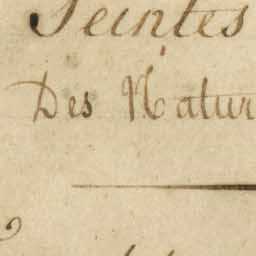 Peintes
Des Natur